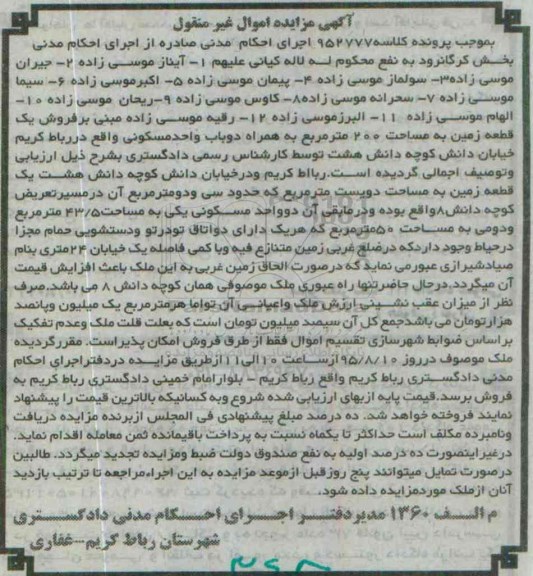 آگهی مزایده اموال غیر منقول
بموجب پرونده کلاسه۹۵۲۷۷۷ اجرای احکام مدنی صادره از اجرای احکام مدنی
بخش کرگانرود به نفع محکوم لـه لاله کیانی علیهم ۱- آیناز موسی زاده ۲- جیران
موسی زاده۳- سولماز موسی زاده ۴- پیمان موسی زاده ۵- اکبرموسی زاده ۶- سیما
موسی زاده ۷- سحرانه موسی زاده۸- کاوس موسی زاده ۹-ریحان موسی زاده ۱۰-
الهام موسی زاده ۱۱- البرزموسی زاده ۱۲- رقیه موسی زاده مبنی برفروش یک
قطعه زمین به مساحت ۲۰۰ مترمربع به همراه دوباب واحدمسکونی واقع دررباط کریم
خیابان دانش کوچه دانش هشت توسط کارشناس رسمی دادگستری بشرح ذیل ارزیابی
وتوصیف اجمالی گردیده است.رباط کریم ودرخیابان دانش کوچه دانش هشت یک
قطعه زمین به مساحت دویست مترمربع که حدود سی ودومترمربع آن درمسیرتعریض
کوچه دانش۸واقع بوده ودرمابقی آن دوواحد مسکونی یکی به مساحت۴۳/۵ مترمربع
ودومی به مساحت ۵۰مترمربع که هریک دارای دواتاق تودرتو ودستشویی حمام مجزا
درحیاط وجود داردکه درضلع غربی زمین متنازع فیه وباکمی فاصله یک خیابان ۲۴متری بنام
صیادشیرازی عبورمی نماید که درصورت الحاق زمین غربی به این ملک باعث افزایش قیمت
آن میگردد.درحال حاضرتنها راه عبوری ملک موصوفی همان کوچه دانش ۸ می باشد.صرف
نظر از میزان عقب نشینی ارزش ملک واعیانی آن تواما هرمترمربع یک میلیون وپانصد
هزارتومان می باشدجمع کل آن سیصد میلیون تومان است که بعلت قلت ملک وعدم تفکیک
براساس ضوابط شهرسازی تقسیم اموال فقط از طرق فروش امکان پذیراست. مقررگردیده
ملک موصوف درروز ۹۵/۸/۱۰ازساعت ۱۰الی۱۱ازطریق مزایده دردفتراجرای احکام
مدنی دادگستری رباط کریم واقع رباط کریم - بلوارامام خمینی دادگستری رباط کریم به
فروش برسد.قیمت پایه ازبهای ارزیابی شده شروع وبه کسانیکه بالاترین قیمت را پیشنهاد
نمایند فروخته خواهد شد. ده درصد مبلغ پیشنهادی فی المجلس ازبرنده مزایده دریافت
ونامبرده مکلف است حداکثر تا یکماه نسبت به پرداخت باقیمانده ثمن معامله اقدام نماید.
درغیراینصورت ده درصد اولیه به نفع صندوق دولت ضبط ومزایده تجدید میگردد. طالبین
درصورت تمایل میتوانند پنج روزقبل ازموعد مزایده به این اجراءمراجعه تا ترتیب بازدید
آنان ازملک موردمزایده داده شود.
م الف ۱۳۶۰ مدیر دفتر اجرای احکام مدنی دادگستری
شهرستان رباط کریم-غفاری